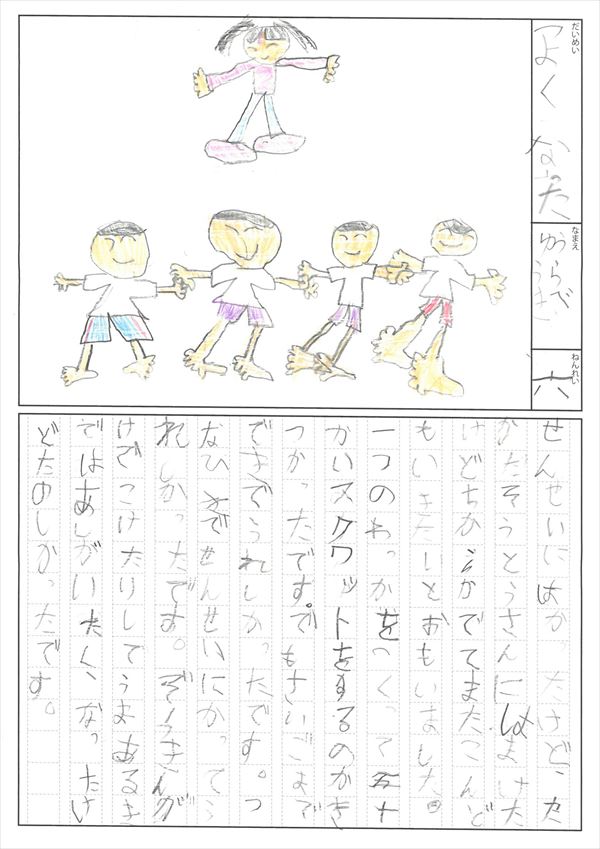 だいめい
よくなった
なまえ
ねんれい
六
せんせいにはかったけど、カ
かたぞうとうさんにはまけた
けどちからがでてまたこんど
もいきたいとおもいました。
一つのわっかをつくって五十
かいスクワットをするのがき
つかったです。でもさいごまで
できてうれしかったです。つ
なひきでせんせいにかってう
れしかったです。ぞうきんが
けでこけたりしてうまあるき
ではあしがいたく、なったけ
どたのしかったです。